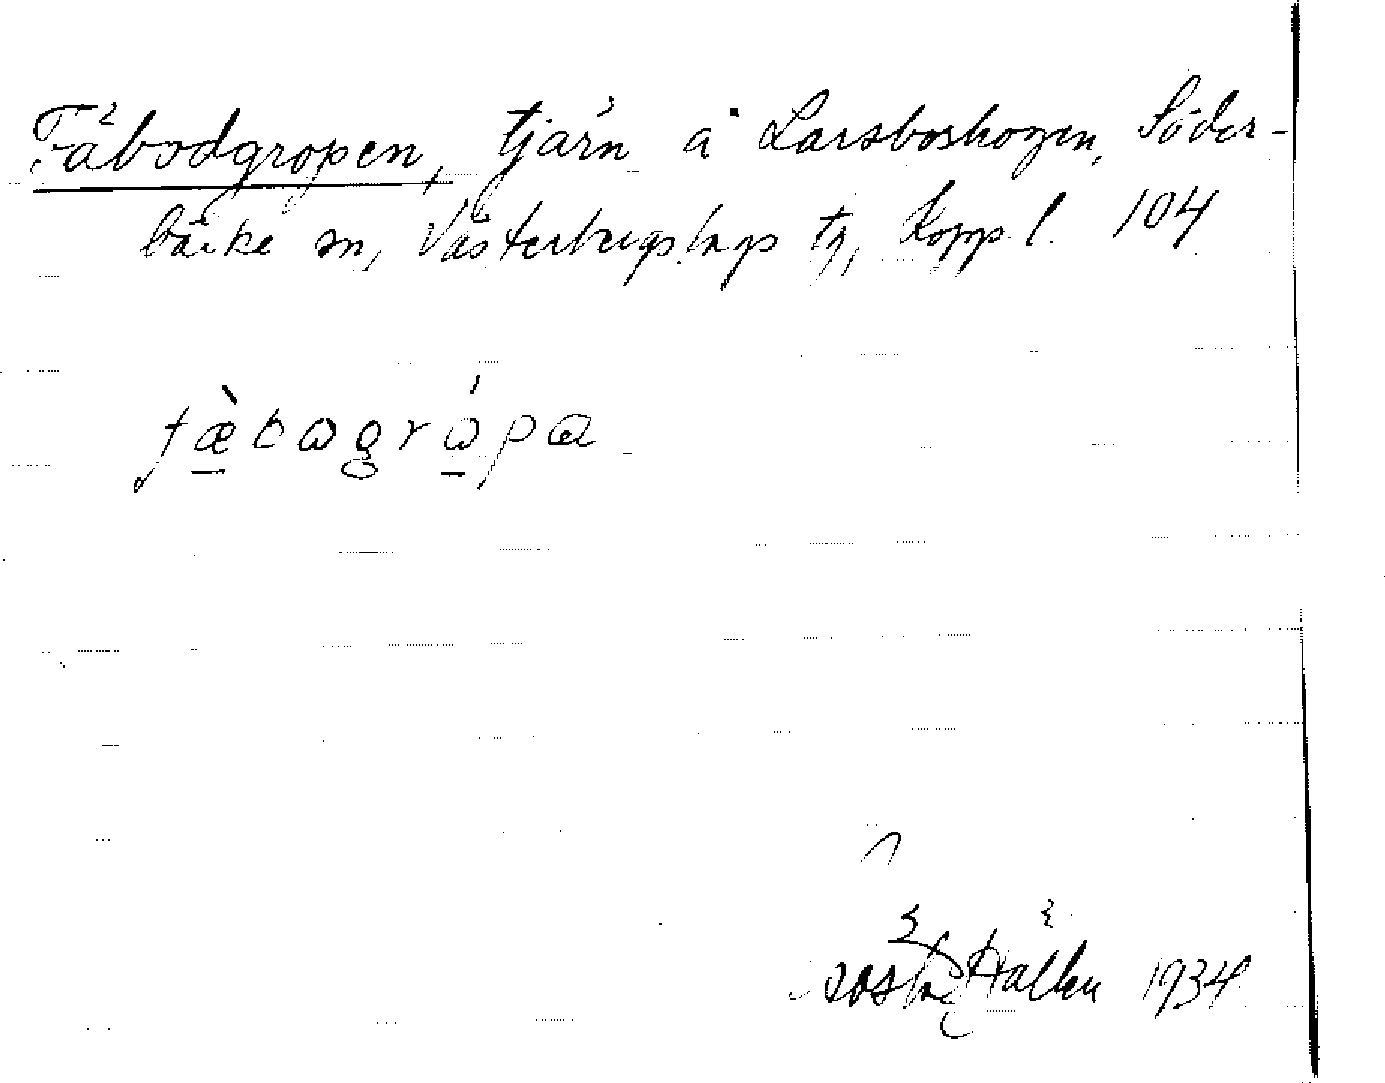 Fäbodgropen, tjärn å Larsboskogen, Söder-
bärke sn, Västerbergslags tg, Kopp l. 104
fæ̀bωgrώpα
Gösta Hallén 1934